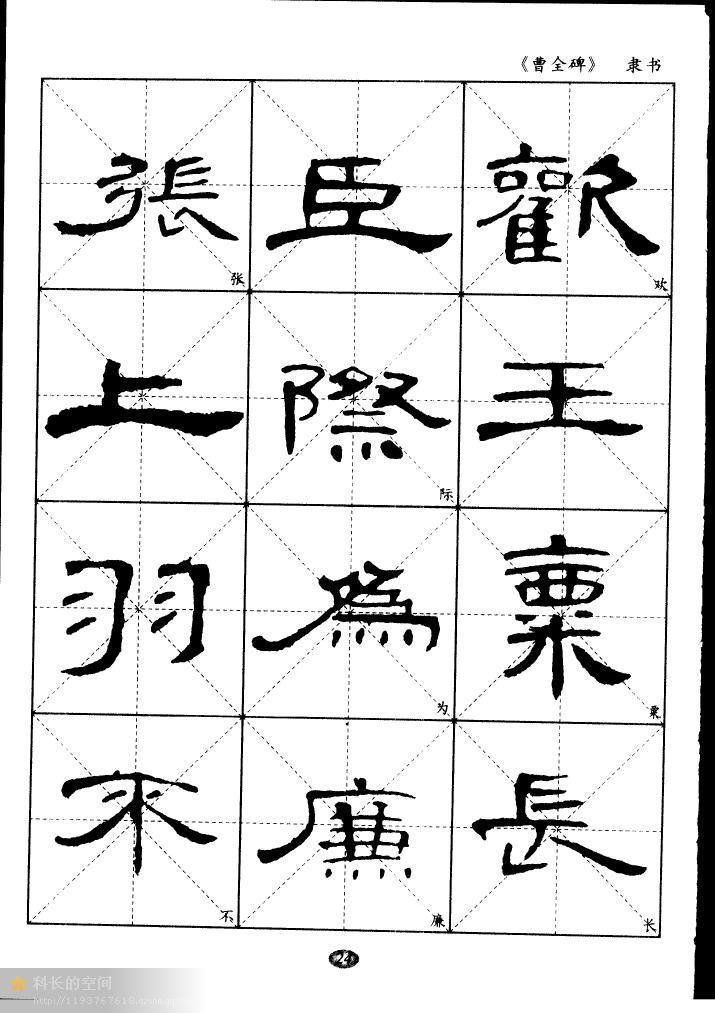 《曹全碑》 隶书
歡 欢
王
粟 粟
長 长
臣
際 际
為 为
廉 廉
張 张
上
羽
不 不
24
科长的空间
http://1193767618.qzone.qq.com